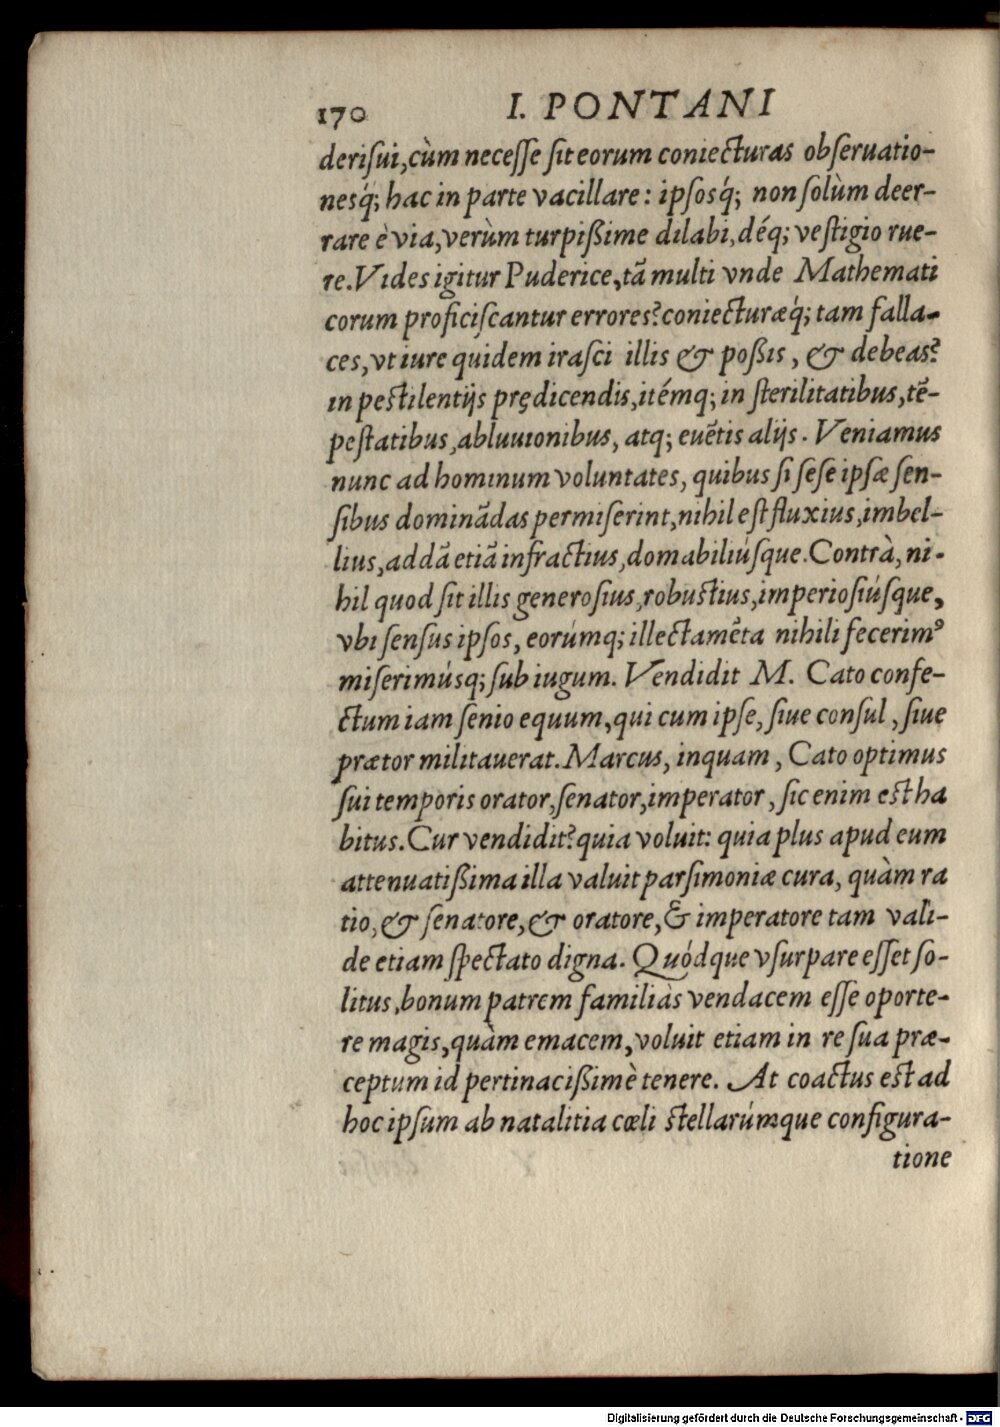 170 I. PONTANI
deriſui, cùm neceſſe ſit eorum coniecturas obſeruatio-
nesq́; hac in parte vacillare: ipſosq́; non ſolùm deer-
rare è via, verùm turpißime dilabi, déq; veſtigio rue-
re. Vides igitur Puderice, tã multi vnde Mathemati
corum proficiſcantur errores? coniecturæq́; tam falla-
ces, vt iure quidem iraſci illis & poßis, & debeas?
in peſtilentijs prędicendis, itémq; in ſterilitatibus, tē-
peſtatibus, abluuionibus, atq; euētis alijs. Veniamus
nunc ad hominum voluntates, quibus ſi ſeſe ipſæ ſen-
ſibus dominãdas permiſerint, nihil eſt fluxius, imbel-
lius, addã etiã infractius, domabiliúſque. Contrà, ni-
hil quod ſit illis generoſius, robuſtius, imperioſiúſque,
vbi ſenſus ipſos, eorúmq; illectamēta nihili fecerimꝰ
miſerimúsq; ſub iugum. Vendidit M. Cato confe-
ctum iam ſenio equum, qui cum ipſe, ſiue conſul, ſiue
prætor militauerat. Marcus, inquam, Cato optimus
ſui temporis orator, ſenator, imperator, ſic enim eſt ha
bitus. Cur vendidit? quia voluit: quia plus apud eum
attenuatißima illa valuit parſimoniæ cura, quàm ra
tio, & ſenatore, & oratore, & imperatore tam vali-
de etiam ſpectato digna. Quódque vſurpare eſſet ſo-
litus, bonum patrem familiàs vendacem eſſe oporte-
re magis, quàm emacem, voluit etiam in re ſua præ-
ceptum id pertinacißimè tenere. At coactus eſt ad
hoc ipſum ab natalitia cœli ſtellarúmque configura-
tione
Digitalisierung gefördert durch die Deutsche Forschungsgemeinschaft - DFG